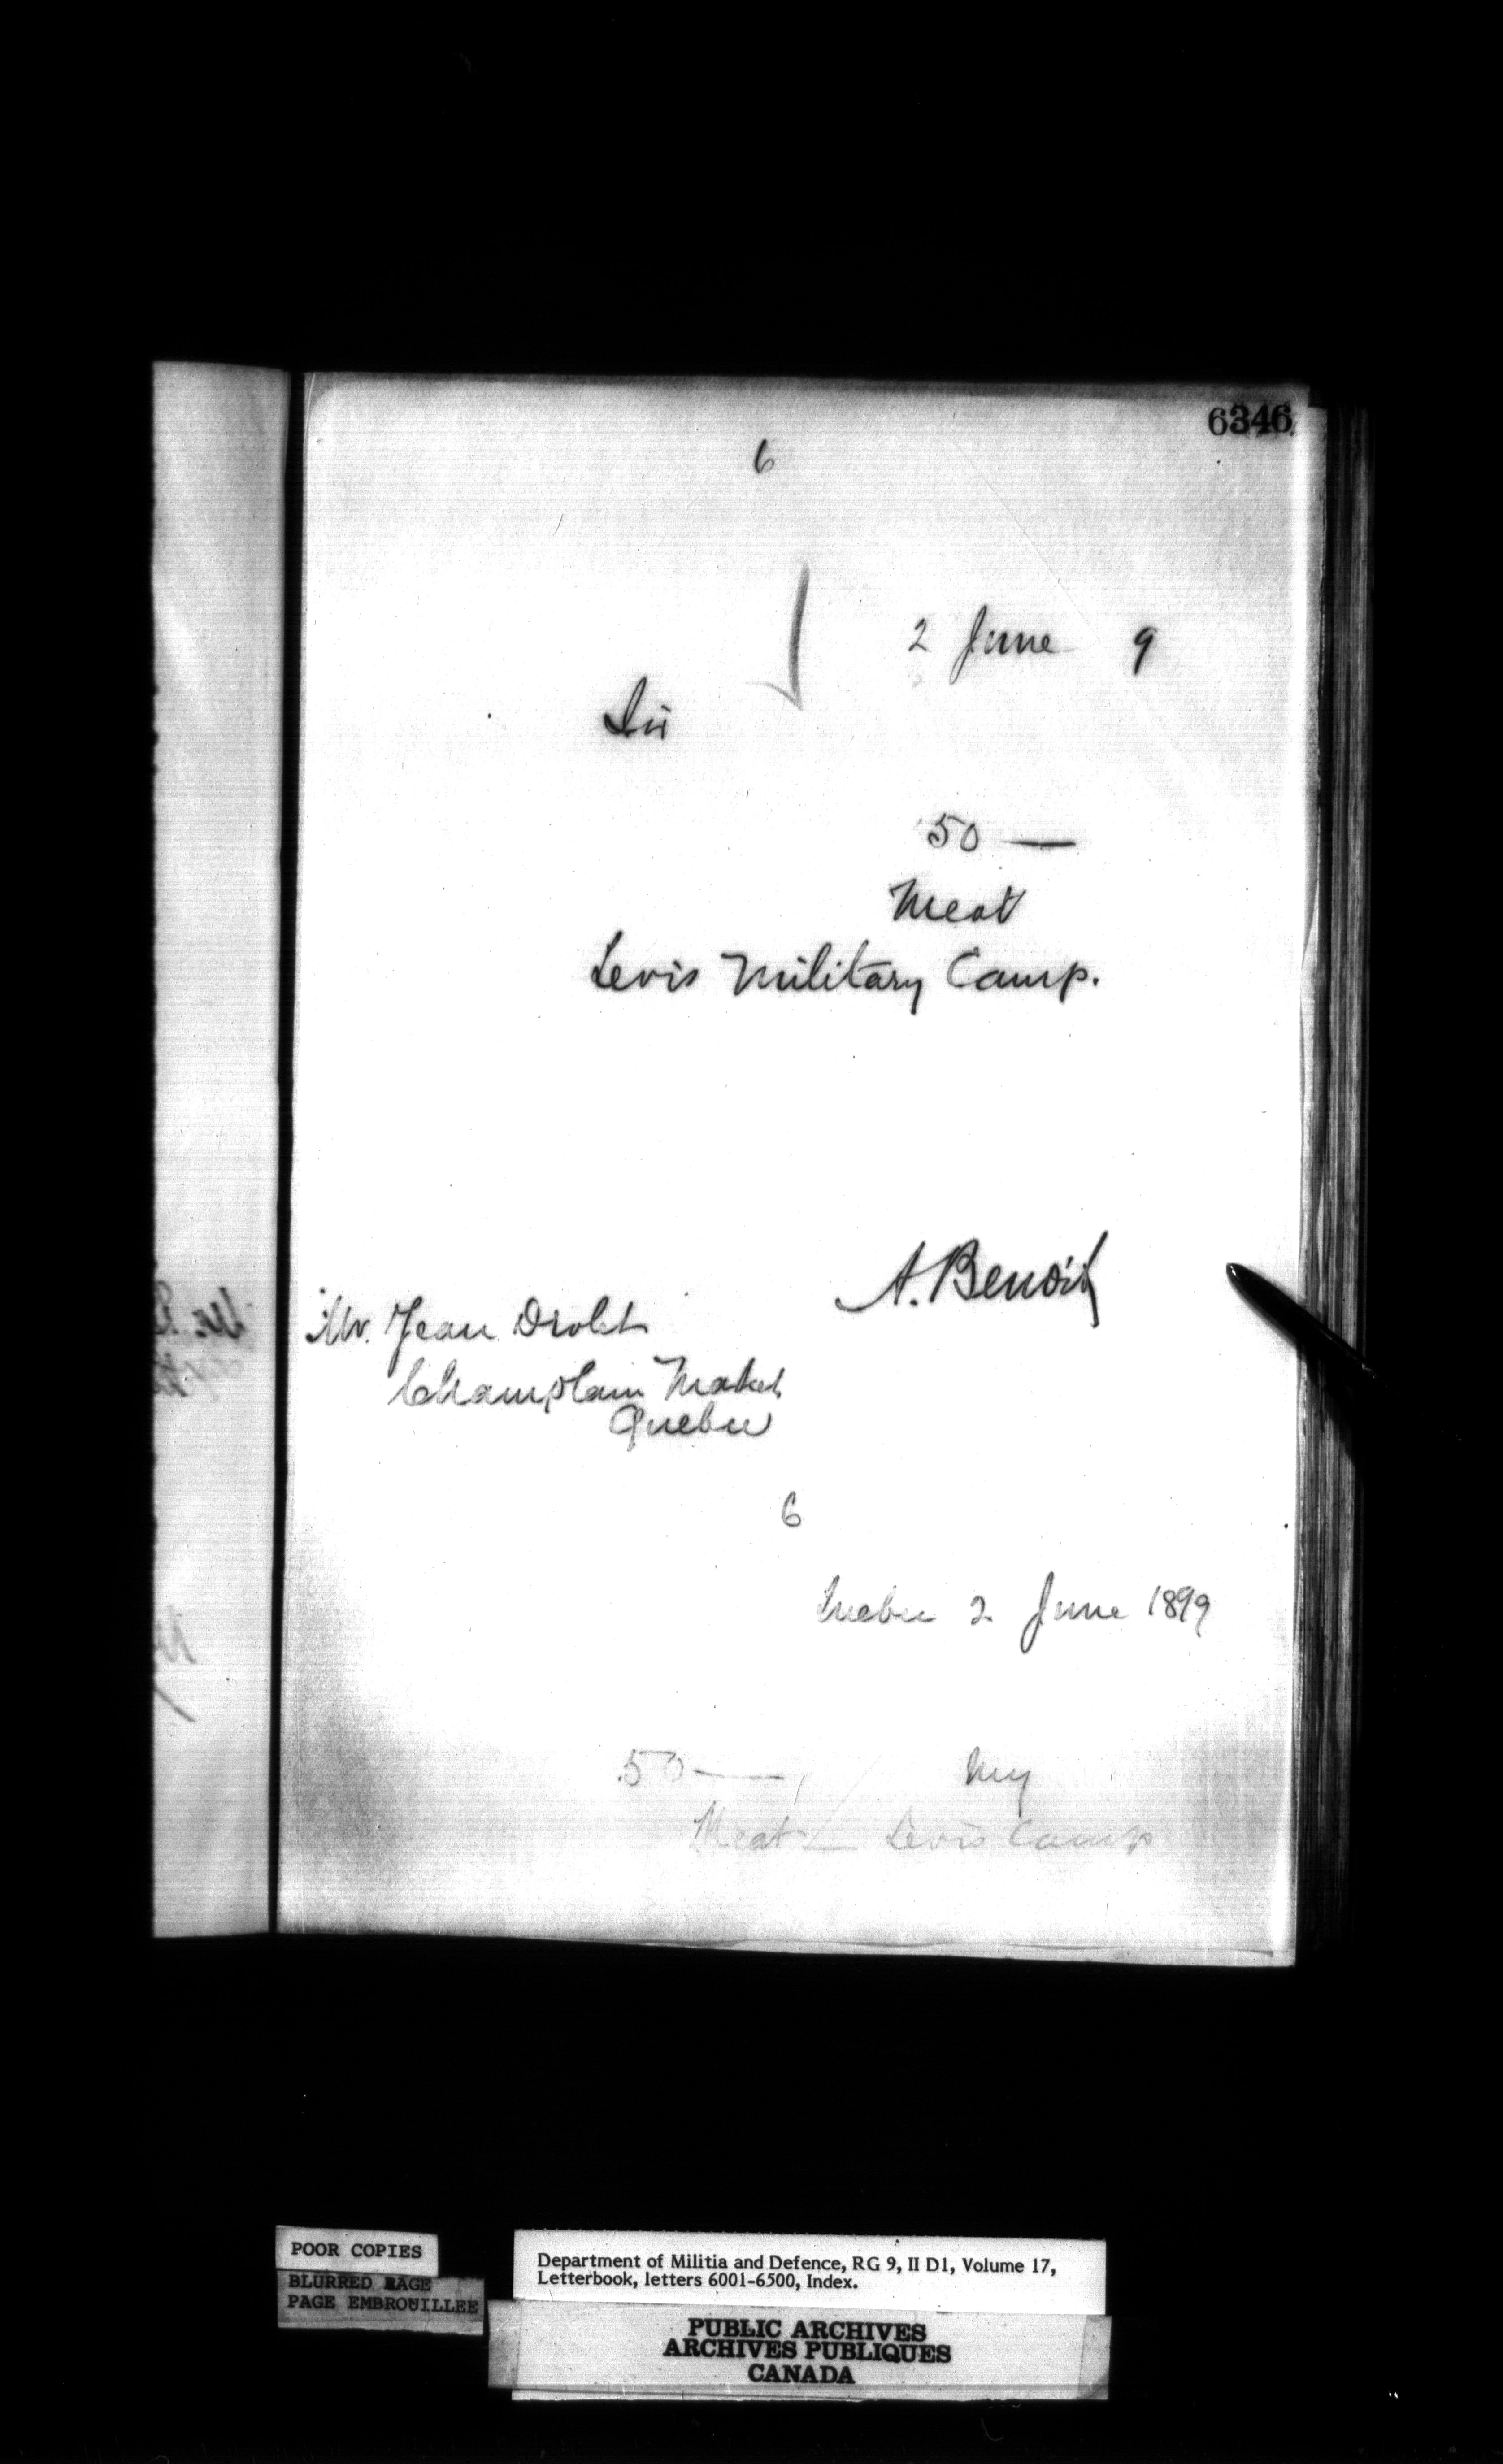 6346
6
2 June 9
Sir
50 —
Meat
Levis Military Camp.
A. Benoit
Mr. Jean Drolet
Champlain Market
Quebec
6
Quebec 2 June 1899
50 — my
Meat — Levis Camp
POOR COPIES
BLURRED PAGE
PAGE EMBROUILLEE
Department of Militia and Defence, RG 9, II D1, Volume 17,
Letterbook, letters 6001-6500, Index.
PUBLIC ARCHIVES
ARCHIVES PUBLIQUES
CANADA